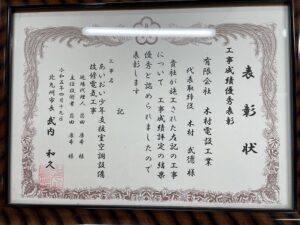 表彰状
工事成績優秀表彰
有限会社 木村電設工業
代表取締役 木村 武德 様
貴社が施工された左記の工事
について 工事成績評定の結果
優秀と認められましたので
表彰します
記
工事名
あいおい少年支援室空調設備
改修電気工事
現場代理人 忍田 康希 様
主任技術者 忍田 康希 様
令和五年四月十九日
北九州市長 武内 和久